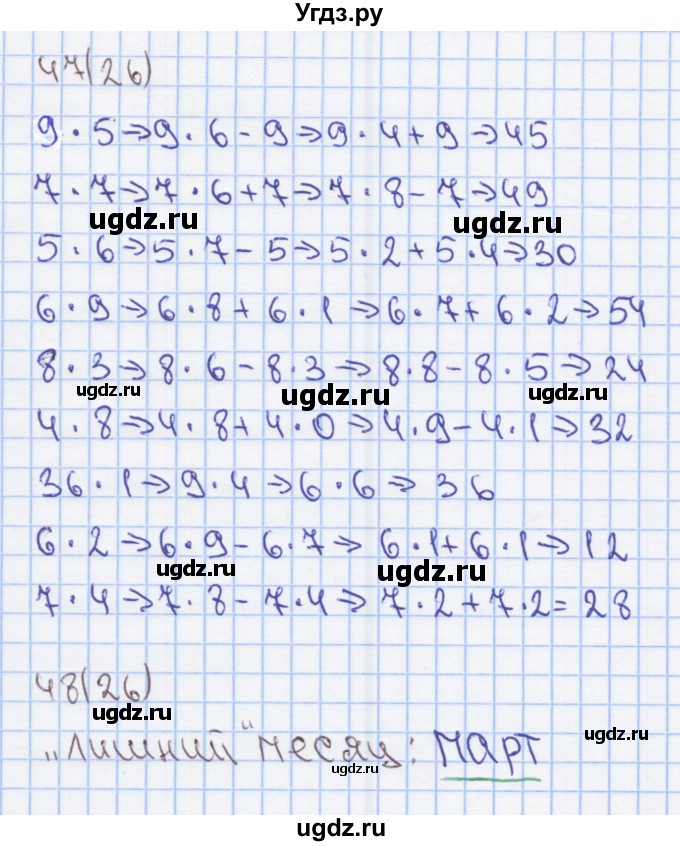 Угдз.ру
47(26)
9·5→9·6-9→9·4+9→45
7·7→7·6+7→7·8-7→49
ugdz.ru ugdz.ru
5·6→5·7-5→5·2+5·4→30
6·9→6·8+6·1→6·7+6·2→54
8·3→8·6-8·3→8·8-8·5→24
ugdz.ru ugdz.ru ugdz.ru
4·8→4·8+4·0→4·9-4·1→32
36·1→9·4→6·6→36
6·2→6·9-6·7→6·1+6·1→12
ugdz.ru ugdz.ru
7·4→7·8-7·4→7·2+7·2=28
48(26)
ugdz.ru
„Лишний" месяц: март
ugdz.ru ugdz.ru
ugdz.ru